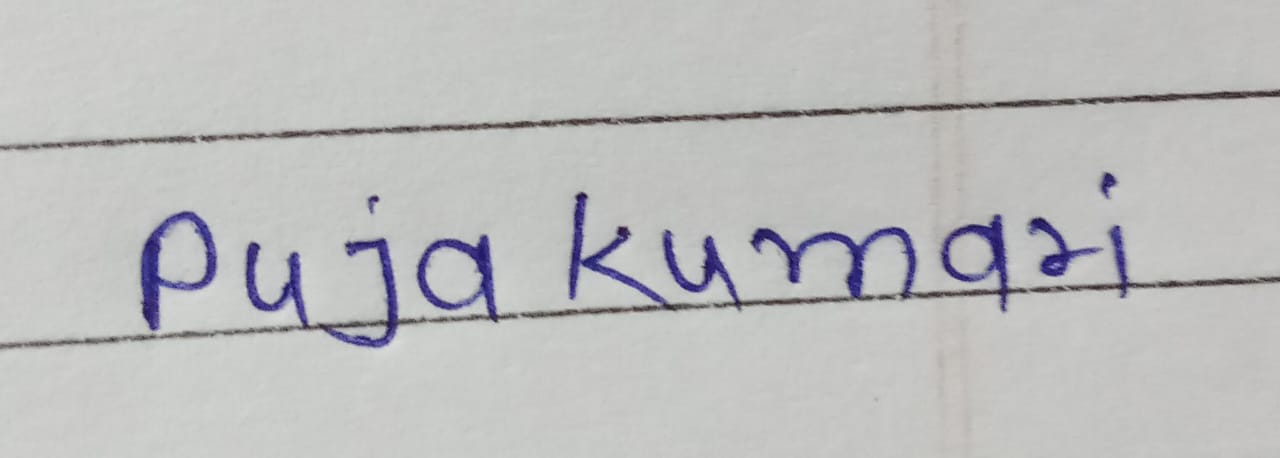 Puja kumari